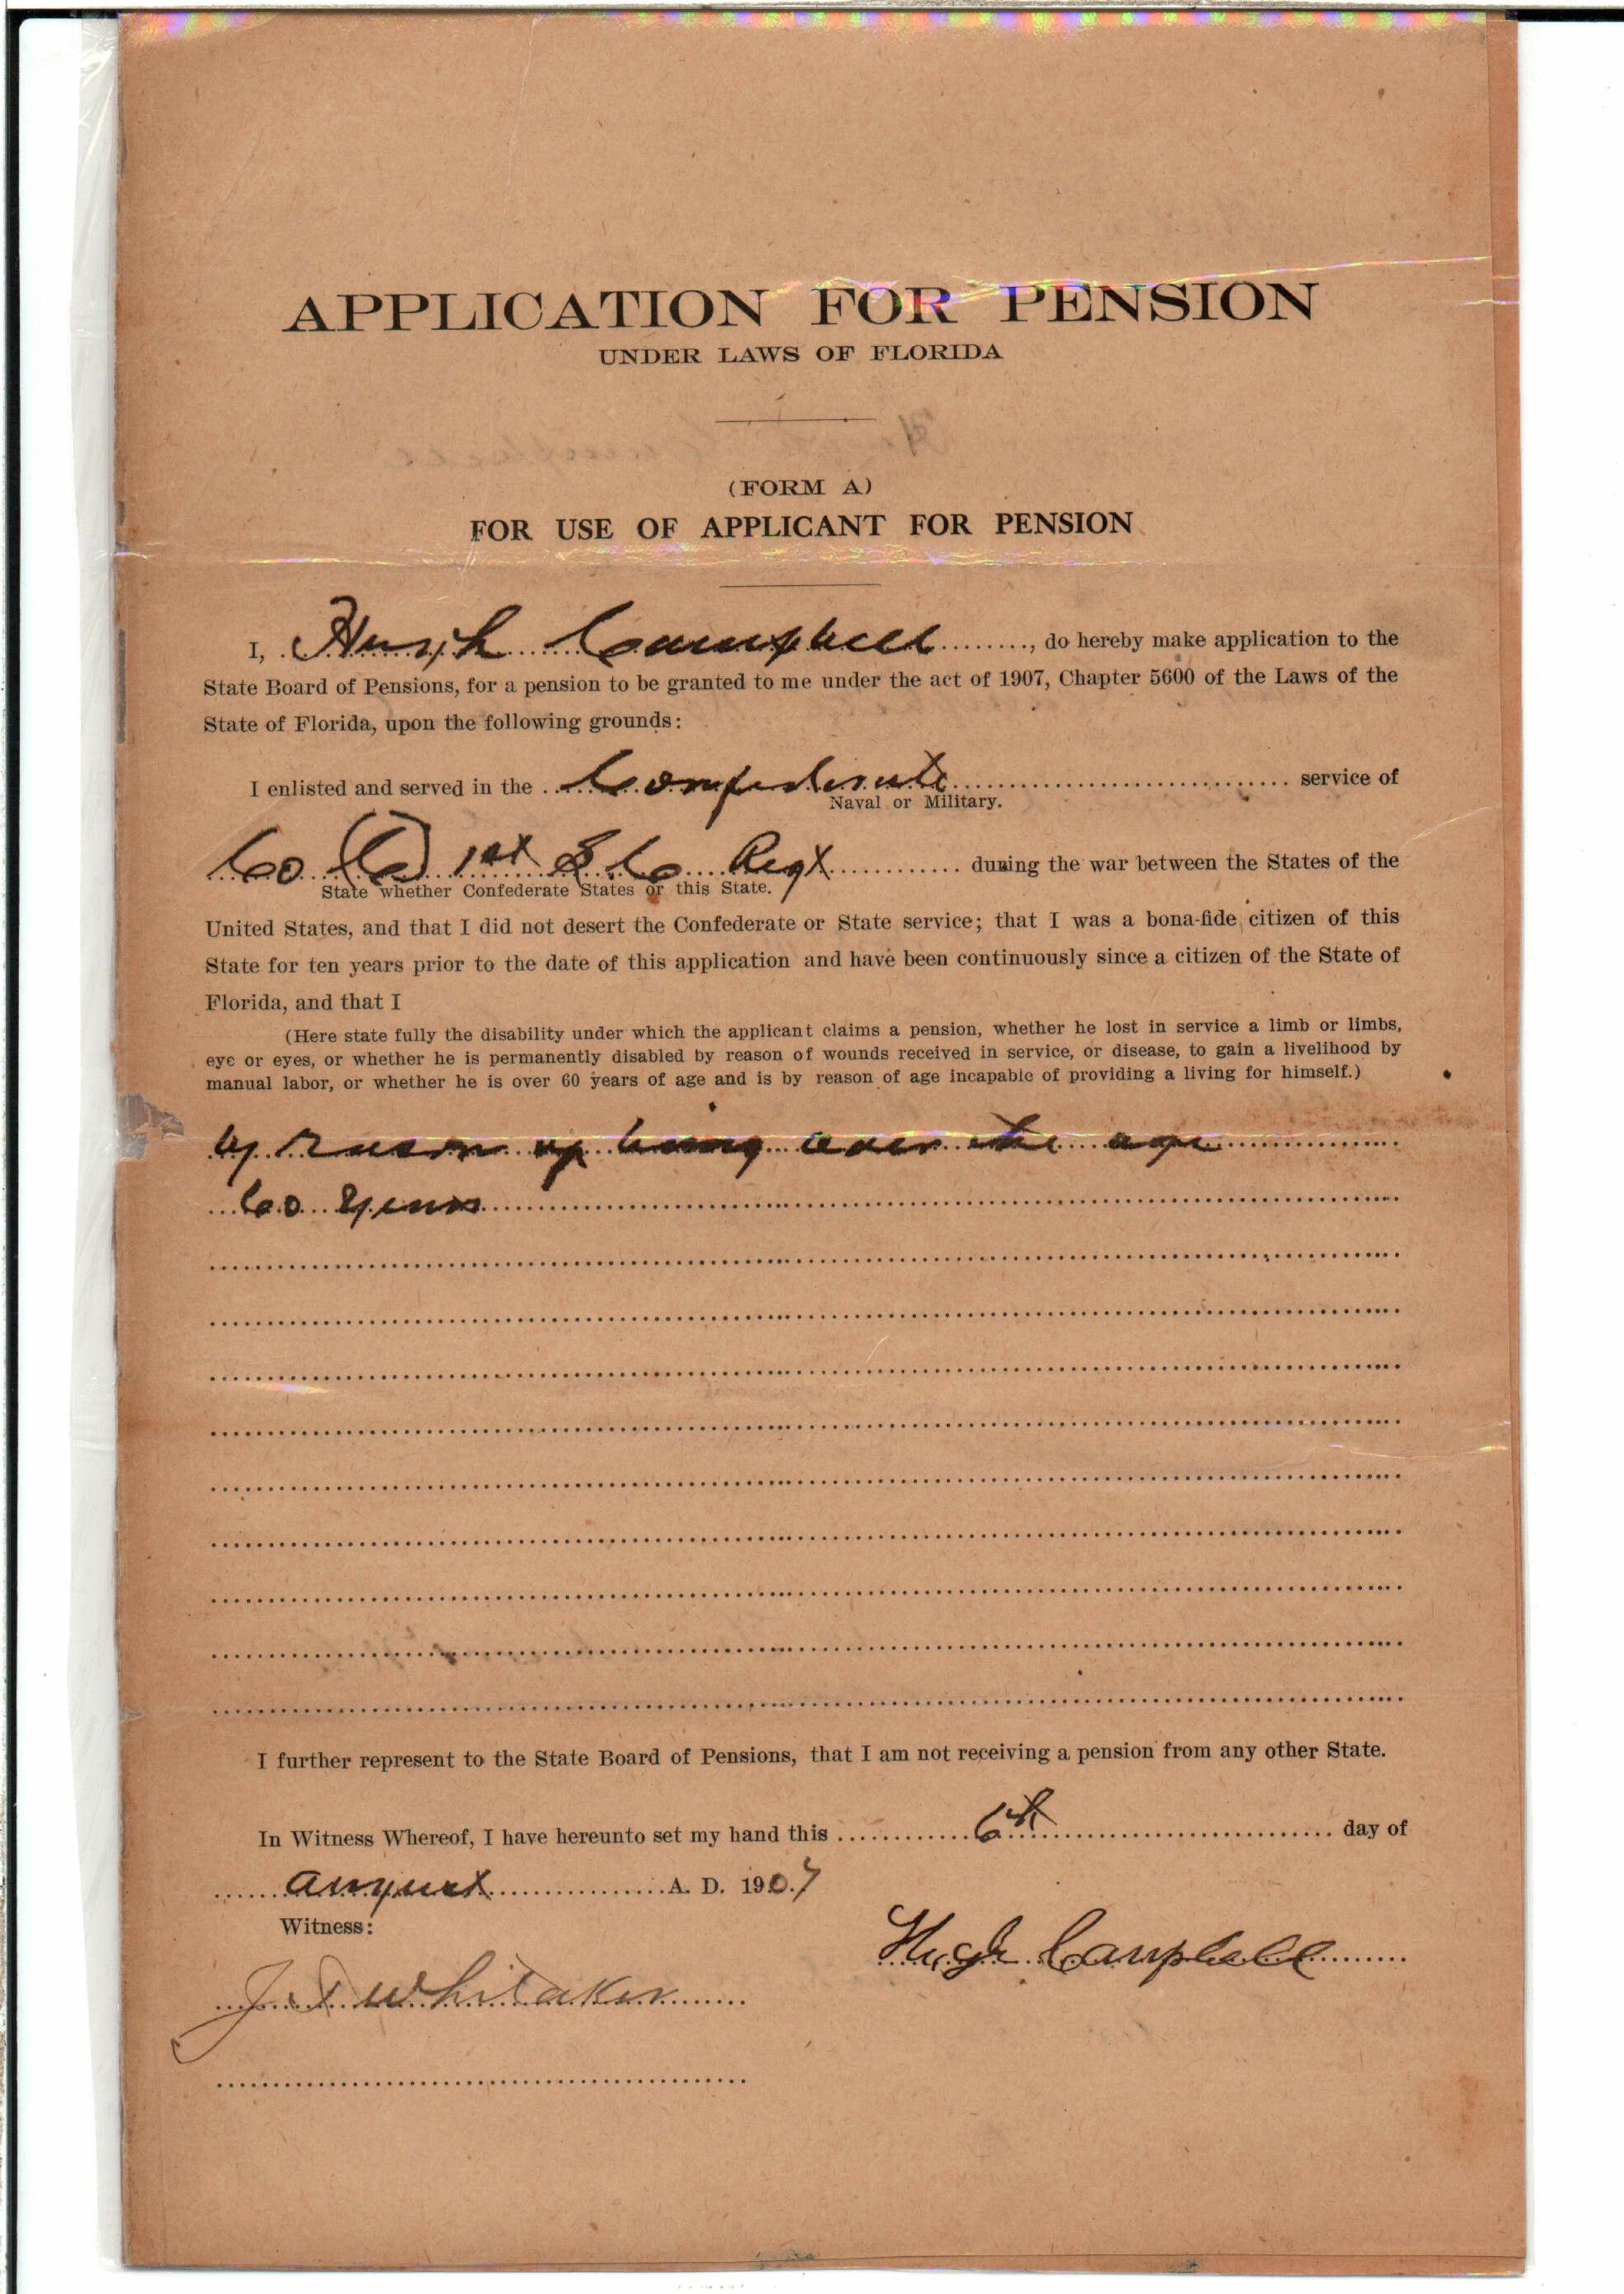 APPLICATION FOR PENSION
UNDER LAWS OF FLORIDA
(FORM A)
FOR USE OF APPLICANT FOR PENSION
I, Hugh Campbell, do hereby make application to the
State Board of Pensions, for a pension to be granted to me under the act of 1907, Chapter 5600 of the Laws of the
State of Florida, upon the following grounds:
I enlisted and served in the Confederate service of
Naval or Military.
Co (C) 1st S Co Regt during the war between the States of the
State whether Confederate States or this State.
United States, and that I did not desert the Confederate or State service; that I was a bona-fide citizen of this
State for ten years prior to the date of this application and have been continuously since a citizen of the State of
Florida, and that I
(Here state fully the disability under which the applicant claims a pension, whether he lost in service a limb or limbs,
eye or eyes, or whether he is permanently disabled by reason of wounds received in service, or disease, to gain a livelihood by
manual labor, or whether he is over 60 years of age and is by reason of age incapable of providing a living for himself.)
by reason of being over the age
60 years
I further represent to the State Board of Pensions, that I am not receiving a pension from any other State.
In Witness Whereof, I have hereunto set my hand this 6th day of
August A. D. 1907
Witness:
Hugh Campbell
Whitaker